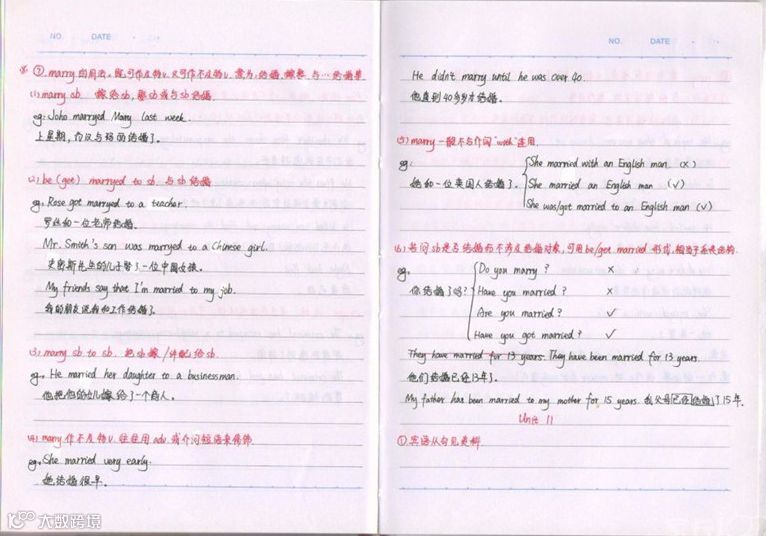 NO. DATE
⑦ marry的用法。既可作及物v.又可作不及物v. 意为:结婚,嫁娶,与…结婚等
(1) marry sb 嫁给sb,娶sb或与sb结婚
eg: John marryed Mary last week.
上星期,约汉与玛丽结婚了。
(2) be (get) marryed to sb 与sb结婚
eg: Rose got marryed to a teacher.
罗丝和一位老师结婚。
Mr. Smith's son was marryed to a Chinese girl.
史密斯先生的儿子娶了一位中国女孩。
My friends say that I'm married to my job.
我的朋友说我和工作结婚了。
(3) marry sb to sb. 把sb嫁/许配给sb.
eg. He married her daughter to a businessman.
他把他的女儿嫁给了一个商人。
(4) marry作不及物v.往往用adv.或介词短语来修饰
eg. She married very early.
她结婚很早。
NO. DATE
He didn't marry until he was over 40.
他直到40多岁才结婚。
(5) marry一般不与介词"with"连用.
eg: She married with an English man. (×)
她和一位英国人结婚了。 She married an English man (√)
She was/got married to an English man (√)
(6) 若问sb是否结婚而不涉及结婚对象,可用be/get married形式,相当于系表结构.
eg. Do you marry? ×
你结婚了吗? Have you married? ×
Are you married? √
Have you got married? √
They have married for 13 years. They have been married for 13 years.
他们结婚已经13年了。
My father has been married to my mother for 15 years. 我父母已经结婚了15年.
Unit 11
①宾语从句见资料
大数跨境